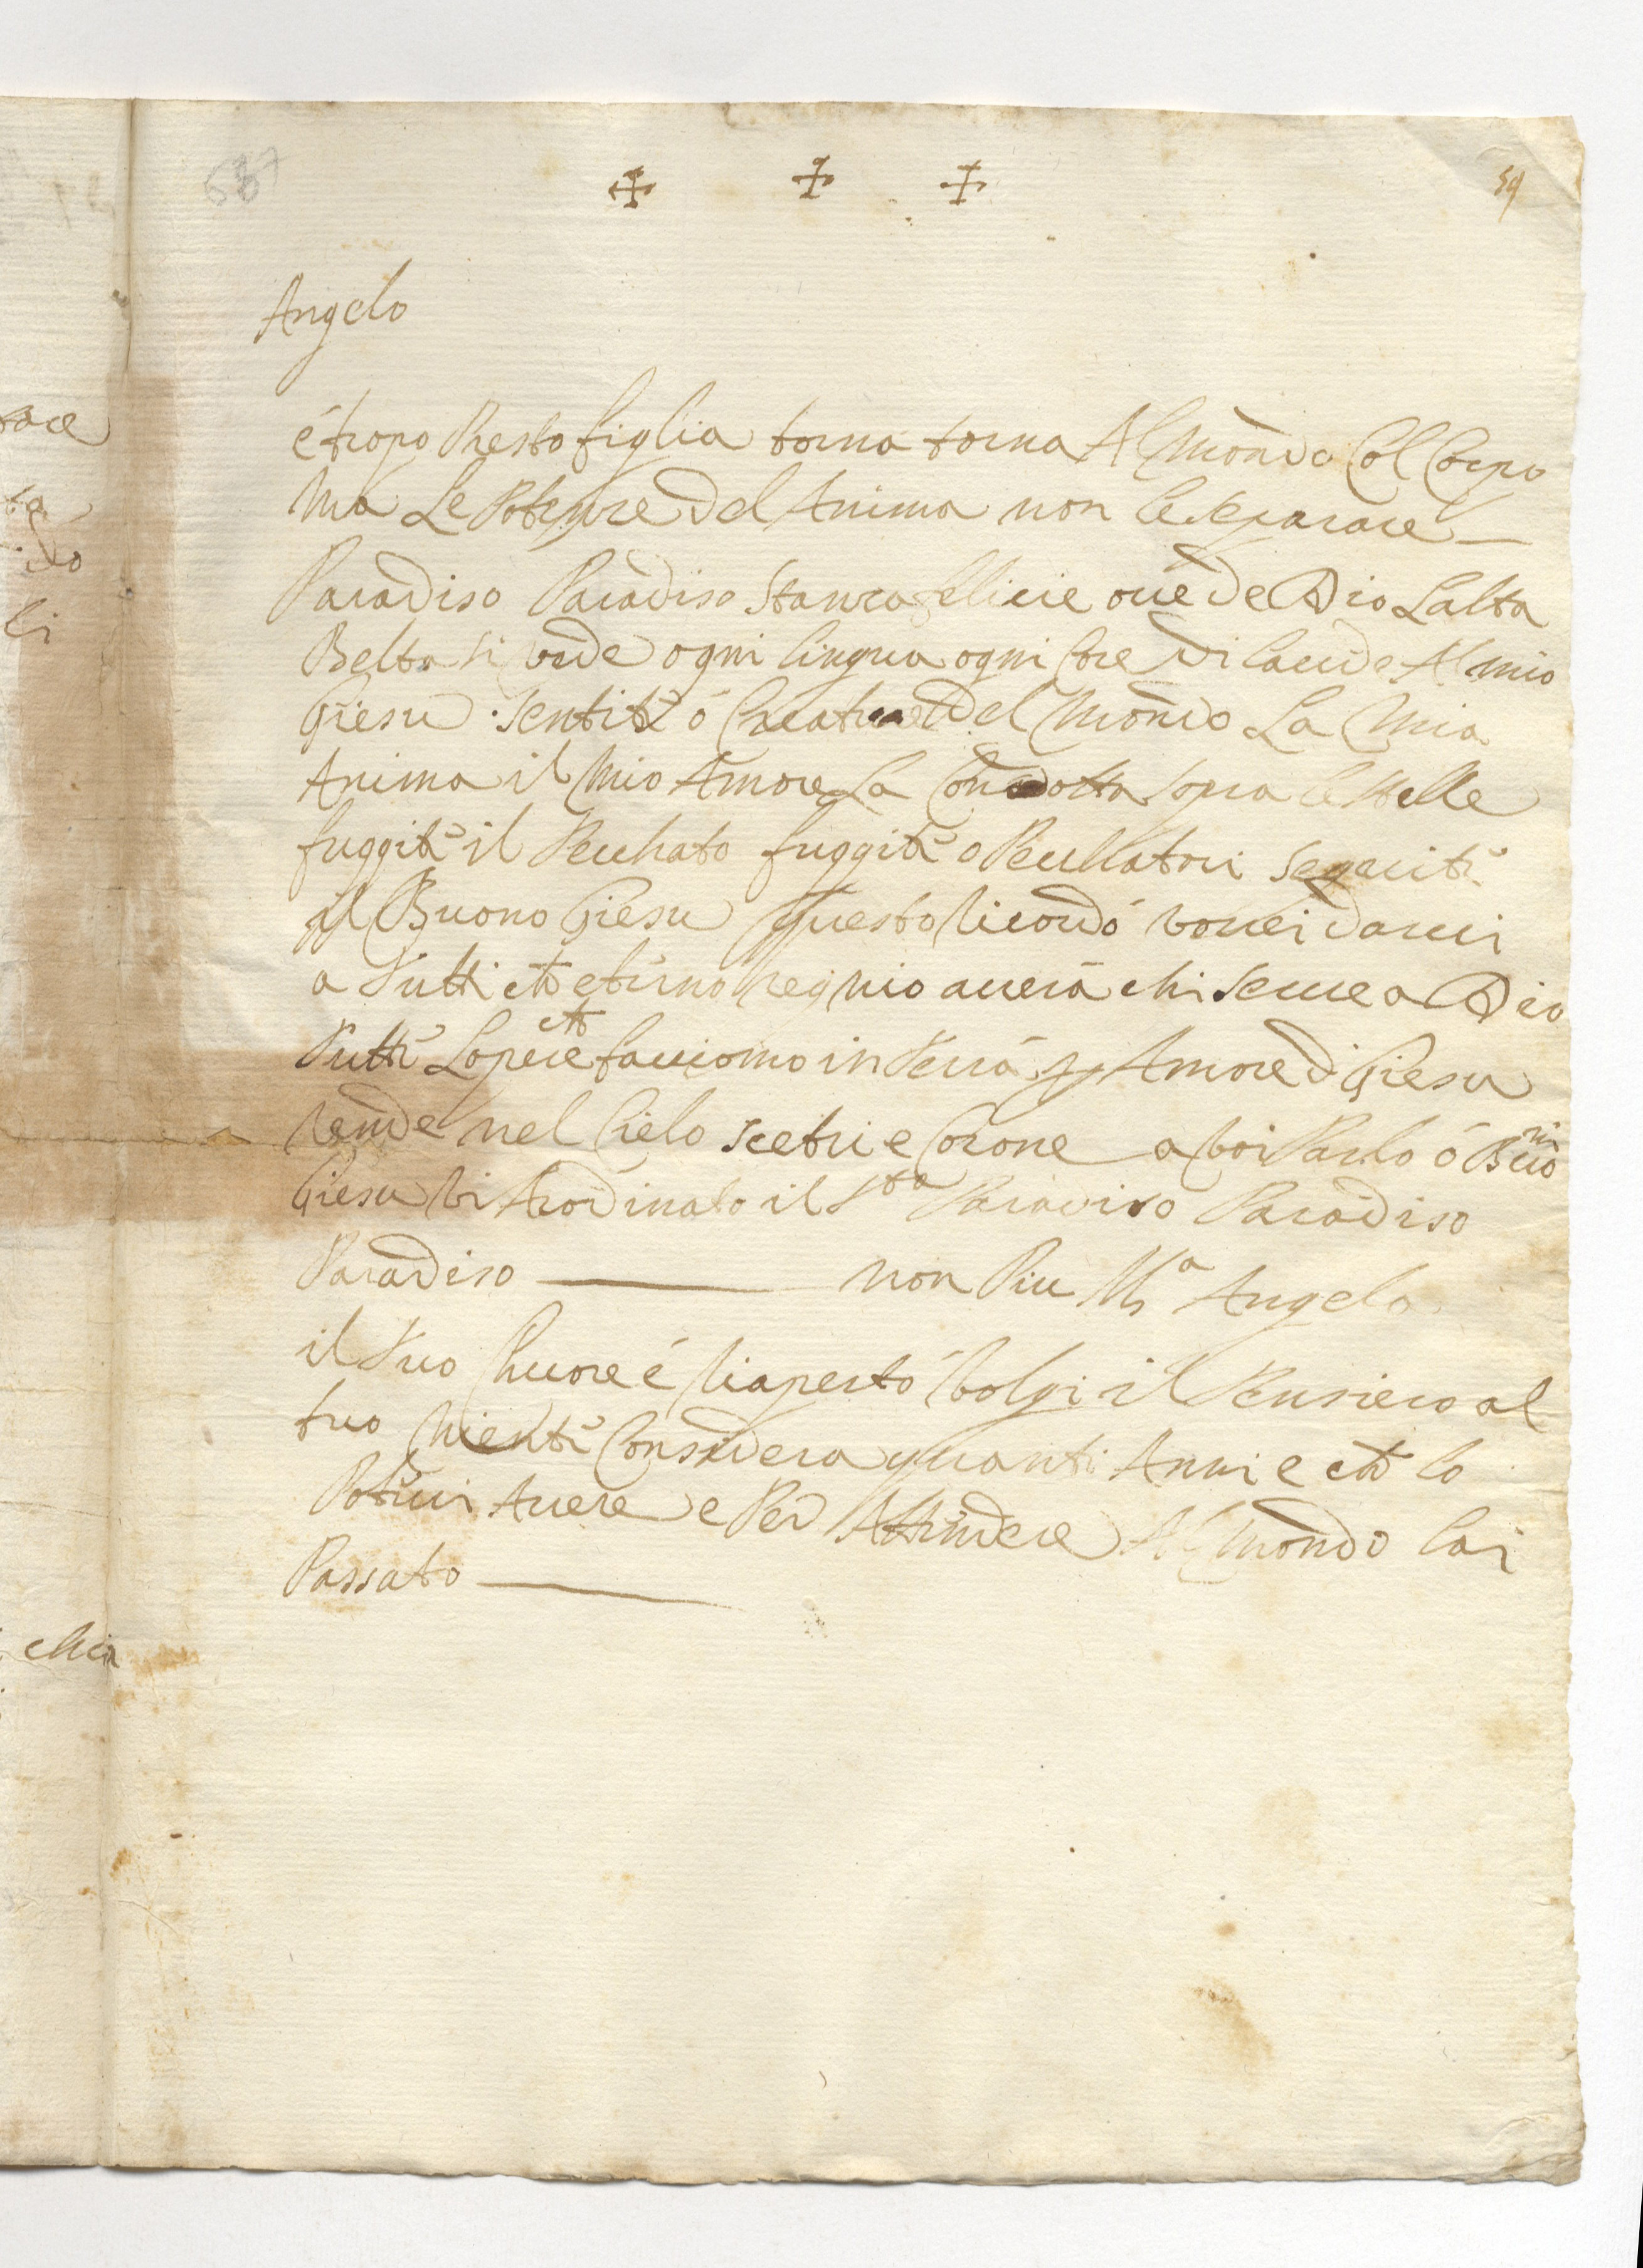 587
59
Angelo
é tropo Presto figlia torna torna Al Mondo Col Corpo
Ma Le Potenze Del Anima non le separare
Paradiso Paradiso Stanza felicie oue De Dio Lalta
Belta si vede ogni lingua ogni Core Di laude Al mio
Giesu sentite ó Creature Del Mondo La Mia
Anima il Mio Amore La Condotta sopra le stelle
fuggite il Pecchato fuggite o Pecchatori seguite
il Buono Giesu questo Ricordo vorrei darui
a Tutti che eterno regnio auerà chi serue a Dio
Tutte Lopere che facciomo in Terra per Amore di Giesu
rende nel Cielo scetri e Corone a voi Parlo ó
Giesu vi A ordinato il Sto Paradiso Paradiso
Paradiso non Piu Ma Angela
il Tuo Chuore é Riaperto Volgi il Pensiero al
tuo Niente Considera quanti Anni e che lo
Poteui Auere e Per Attendere Al Mondo lai
Passato
ace
li
chia